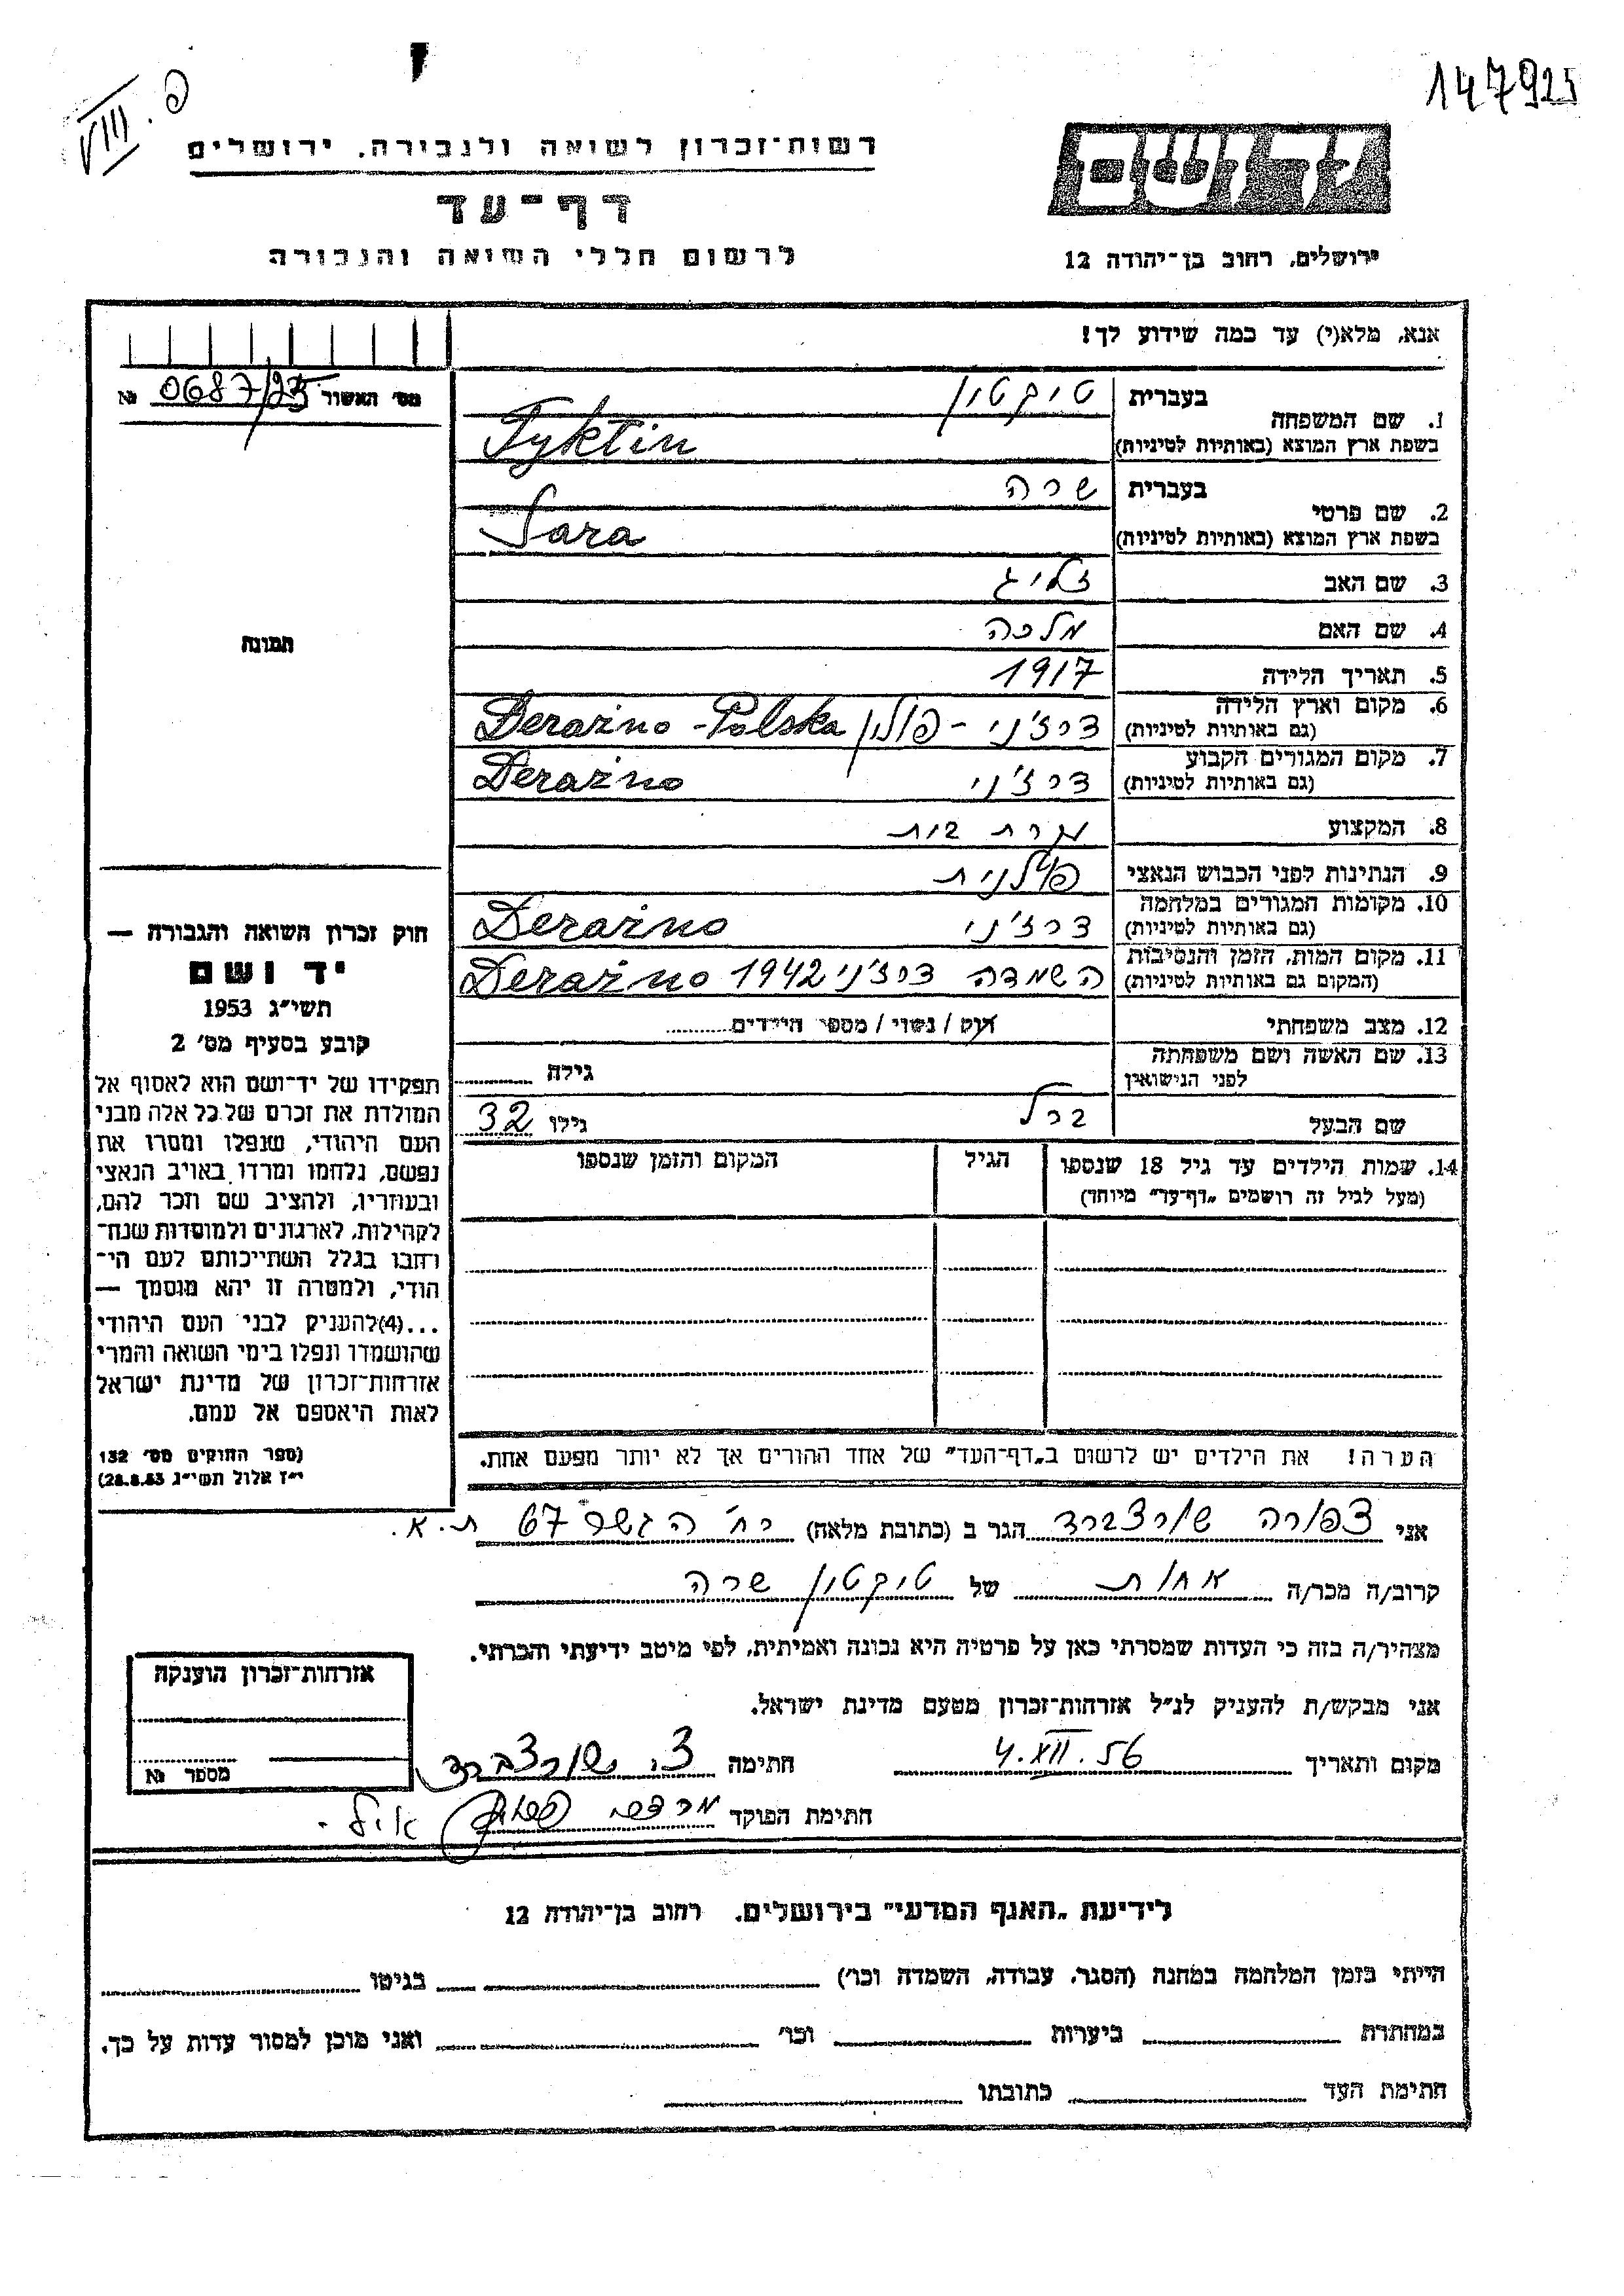 147925
VIII. פ
רשות־זכרון לשואה ולגבורה, ירושלים
דף־עד
לרשום חללי השואה והגבורה
ידושם
ירושלים, רחוב בן־יהודה 12
אנא, מלא(י) עד כמה שידוע לך!
מס׳ האשור № 0687/23
1. שם המשפחה בעברית טיקטין
בשפת ארץ המוצא (באותיות לטיניות) Tyktin
2. שם פרטי בעברית שרה
בשפת ארץ המוצא (באותיות לטיניות) Sara
3. שם האב זליג
4. שם האם מלכה
תמונה
5. תאריך הלידה 1917
6. מקום וארץ הלידה (גם באותיות לטיניות) דרז'ני - פולין Derażno - Polska
7. מקום המגורים הקבוע (גם באותיות לטיניות) דרז'ני Derażno
8. המקצוע עקרת בית
9. הנתינות לפני הכבוש הנאצי פולנית
10. מקומות המגורים במלחמה (גם באותיות לטיניות) דרז'ני Derażno
11. מקום המות, הזמן והנסיבות (המקום גם באותיות לטיניות) השמדה דרז'ני 1942 Derażno
12. מצב משפחתי רווק / נשוי / מספר הילדים
13. שם האשה ושם משפחתה לפני הנישואין גילה
שם הבעל ברל גילו 32
14. שמות הילדים עד גיל 18 שנספו הגיל המקום והזמן שנספו
(מעל לגיל זה רושמים „דף־עד״ מיוחד)
הערה! את הילדים יש לרשום ב„דף־העד״ של אחד ההורים אך לא יותר מפעם אחת.
חוק זכרון השואה והגבורה —
יד ושם
תשי״ג 1953
קובע בסעיף מס׳ 2
תפקידו של יד־ושם הוא לאסוף אל
המולדת את זכרם של כל אלה מבני
העם היהודי, שנפלו ומסרו את
נפשם, נלחמו ומרדו באויב הנאצי
ובעוזריו, ולהציב שם וזכר להם,
לקהילות, לארגונים ולמוסדות שנח־
רבו בגלל השתייכותם לעם הי־
הודי, ולמטרה זו יהא מוסמך —
...(4)להעניק לבני העם היהודי
שהושמדו ונפלו בימי השואה והמרי
אזרחות־זכרון של מדינת ישראל
לאות היאספם אל עמם.
(ספר החוקים מס׳ 132
י״ז אלול תשי״ג 28.8.53)
אני צפורה שוורצברד הגר ב (כתובת מלאה) רח' הגשר 67 ת.א.
קרוב/ה מכר/ה אחות של טיקטין שרה
מצהיר/ה בזה כי העדות שמסרתי כאן על פרטיה היא נכונה ואמיתית, לפי מיטב ידיעתי והכרתי.
אני מבקש/ת להעניק לנ״ל אזרחות־זכרון מטעם מדינת ישראל.
מקום ותאריך 4.XII.56 חתימה צ. שוורצברד
חתימת הפוקד
אזרחות־זכרון הוענקה
מספר №
לידיעת „האגף המדעי״ בירושלים, רחוב בן־יהודה 12
הייתי בזמן המלחמה במחנה (הסגר, עבודה, השמדה וכו׳) בגיטו
במחתרת ביערות וכו׳ ואני מוכן למסור עדות על כך.
חתימת העד כתובתו